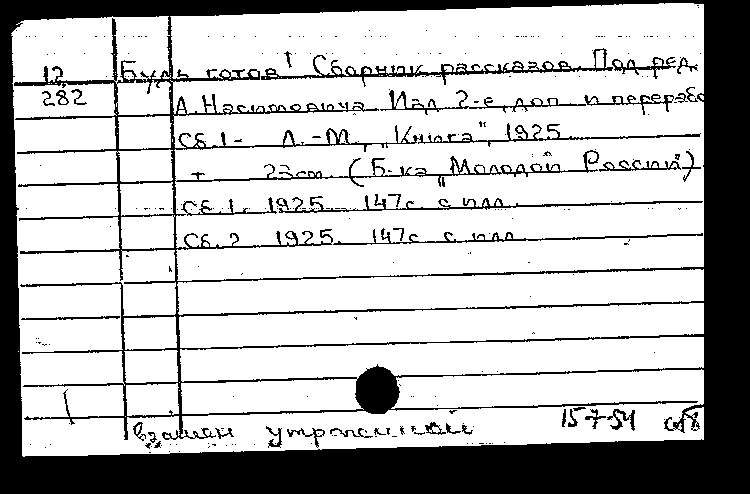 12 Будь готов! Сборник рассказов. Под ред.
282 А. Насимовича. Изд. 2-е, доп. и перерабо
Сб. 1- Л.-М., "Книга", 1925
т 23 см. (Б-ка "Молодой России")
Сб. 1. 1925. 147 с. с илл.
Сб. 2 1925. 147 с. с илл.
взамен утраченной 15-7-54